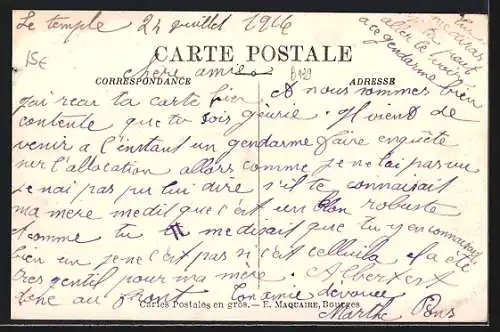 Le temple 24 juillet 1916
15€
CARTE POSTALE
CORRESPONDANCE
ADRESSE
B129
chere amie
jai recu ta carte bien et nous sommes
contente que tu sois guérie. Il vient de
venir a l'instant un gendarme faire enquête
sur l'allocation allors comme je ne lai pas vu
je nai pas pu lui dire s'il te connaisait
ma mere me dit que c'ait un bon robuste
et comme tu me disait que tu y en connaisait
bien un je ne c'ait pas si c'ait celluila il a été
tres gentil pour ma mere. Albert est
au front ton amie dévouée
Cartes Postales en gros. — E. MAQUAIRE, BOURGES
Marthe Pons
a ce gendarme bien